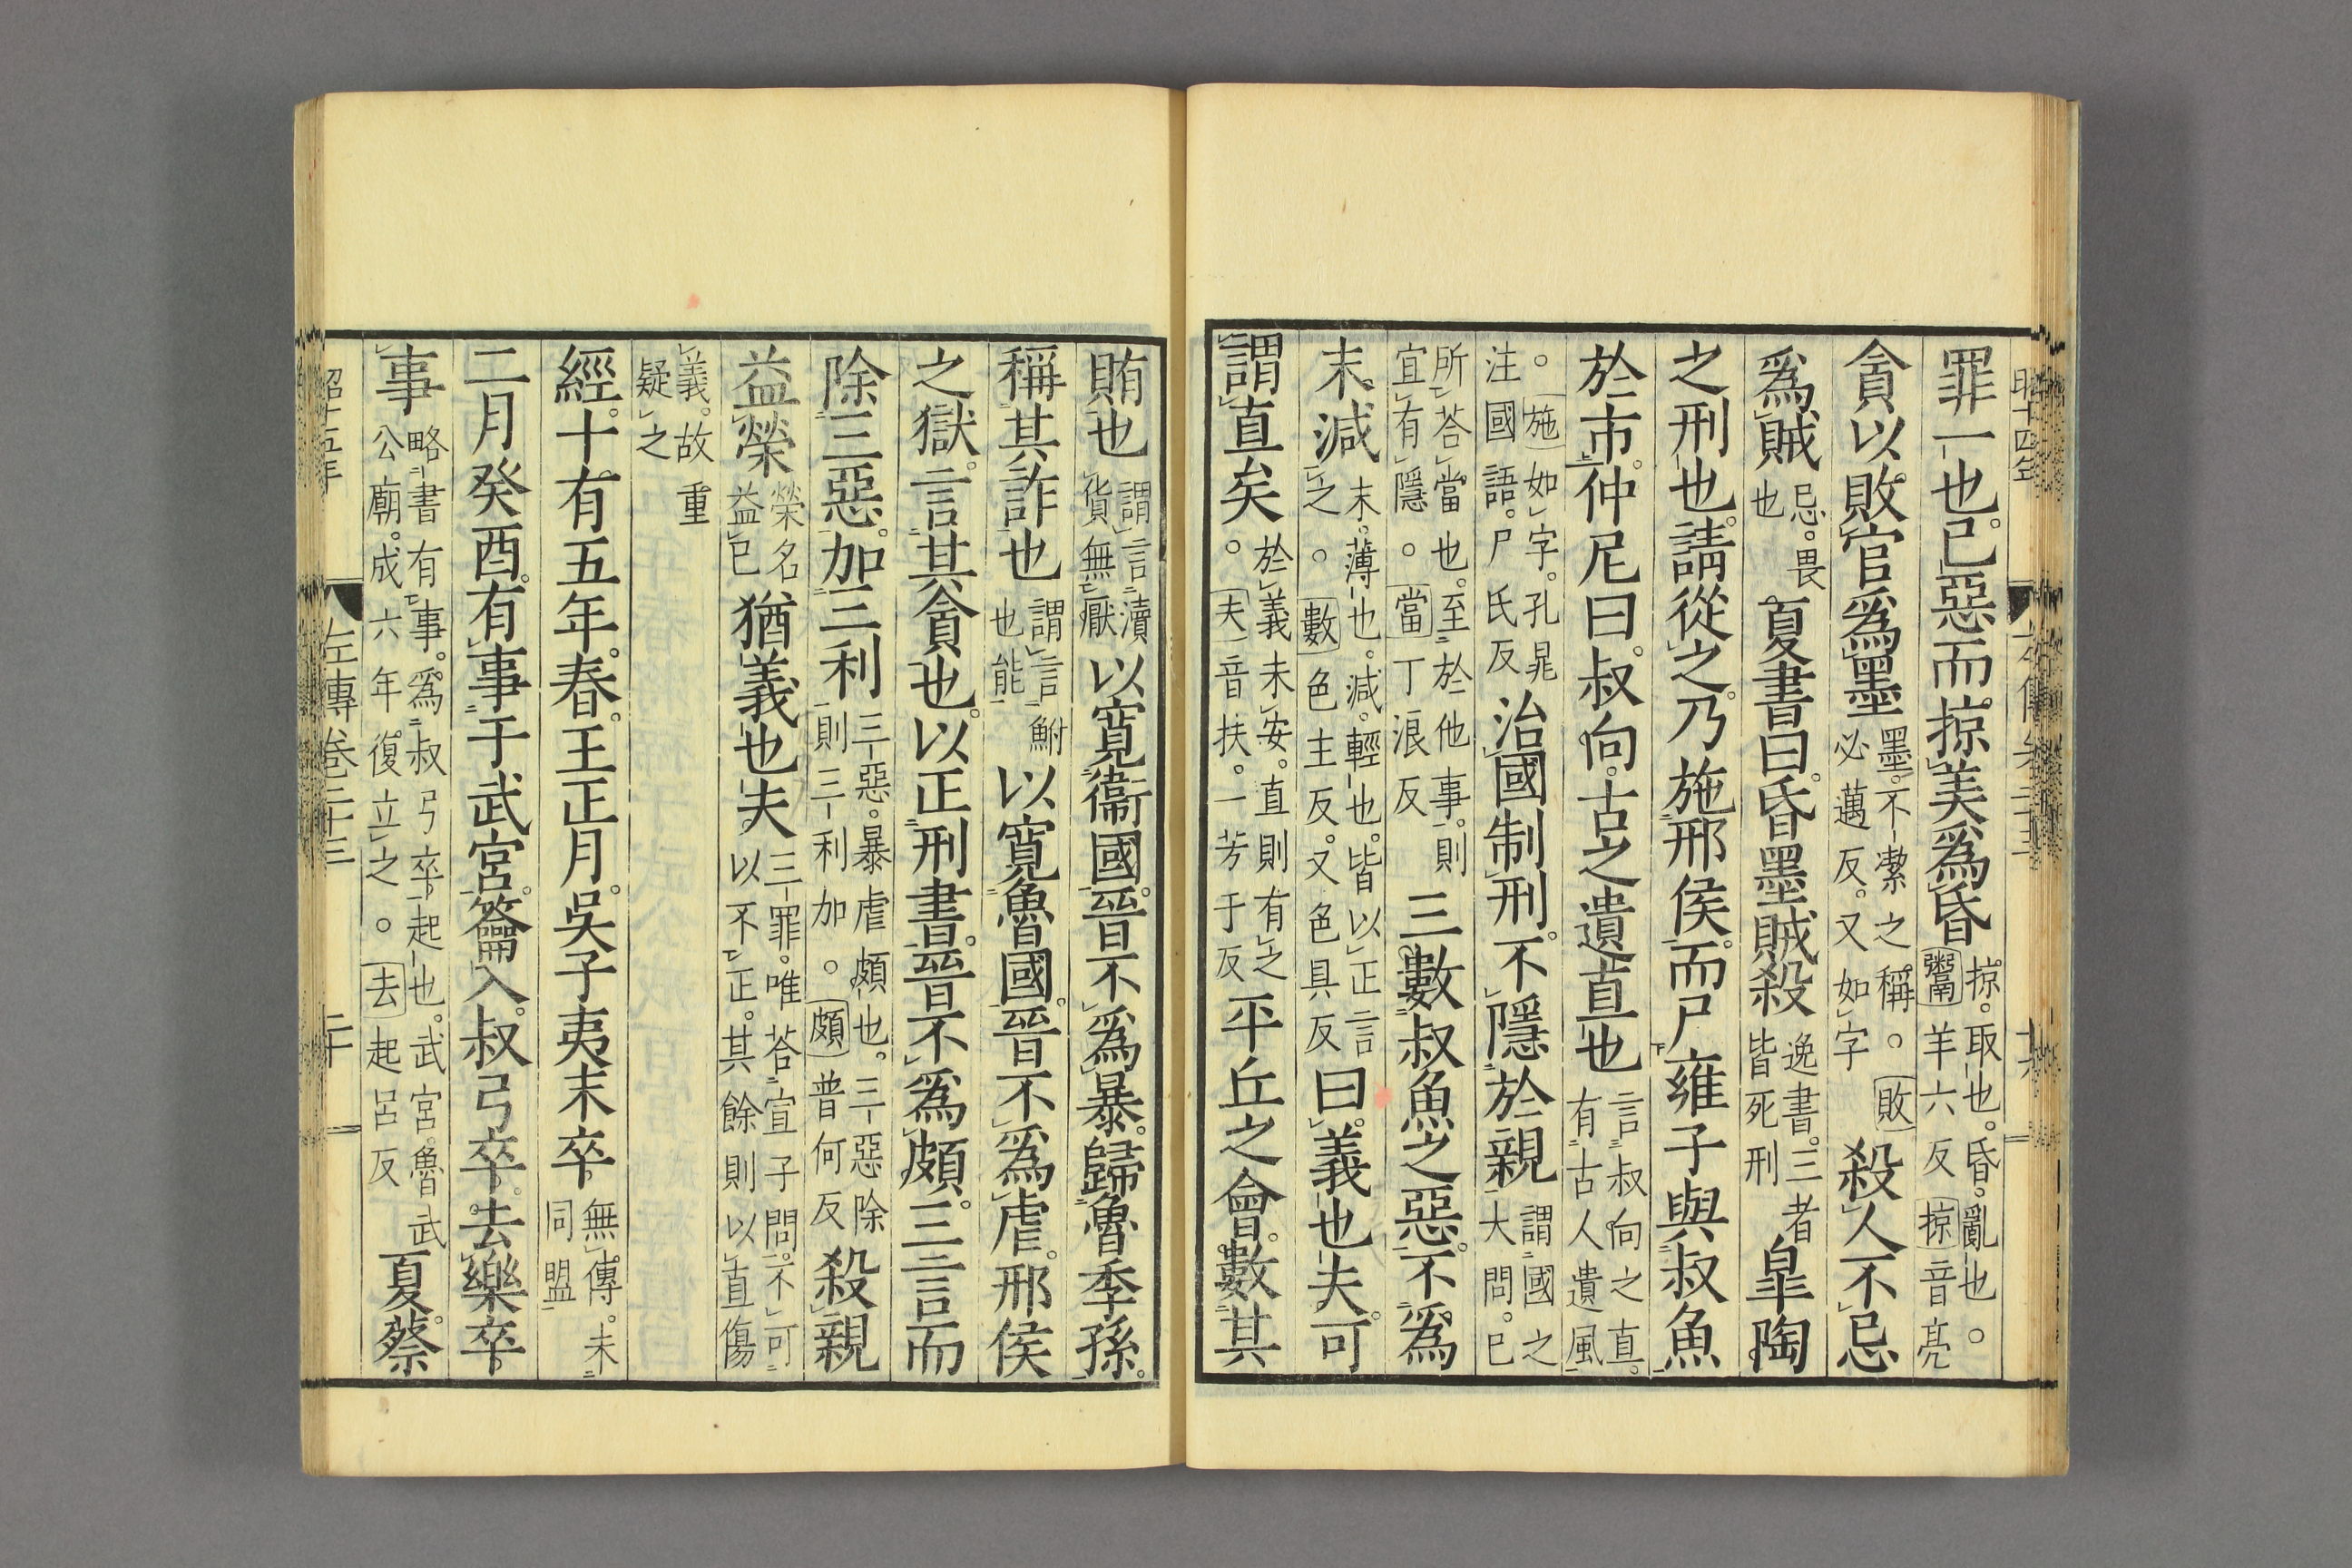 罪一也。已惡而掠美爲昏掠。取也。昏。亂也。○鬻羊六反掠音亮
貪以敗官爲墨墨。不潔之稱。○敗必邁反。又如字殺人不忌
爲賊忌。畏也夏書曰。昏墨賊殺逸書。三者皆死刑皐陶
之刑也。請從之。乃施邢侯。而尸雍子與叔魚
於市。仲尼曰。叔向。古之遺直也言叔向之直。有古人遺風
○施如字。孔晁注國語。尸氏反治國制刑。不隱於親謂國之大問。已
所荅當也。至於他事。則宜有隱。○當丁浪反三數叔魚之惡。不爲
末減末。薄也。減。輕也。皆以正言之。○數色主反。又色具反曰。義也夫。可
謂直矣。於義未安。直則有之。○夫音扶。一芳于反平丘之會。數其
賄也謂言瀆貨無厭以寬衞國。晉不爲暴。歸魯季孫。
稱其詐也謂言鮒也能以寬魯國。晉不爲虐。邢侯
之獄。言其貪也。以正刑書。晉不爲頗。三言而
除三惡。加三利三惡。暴虐頗也。三惡除則三利加。○頗普何反殺親
益榮榮名益已猶義也夫。三罪。唯荅宣子問。不可以不正。其餘則以直傷
義。故重疑之
經。十有五年。春。王正月。吳子夷末卒。無傳。未同盟
二月癸酉。有事于武宮。籥入。叔弓卒。去樂卒
事略書有事。爲叔弓卒。起也。武宮。魯武公廟。成六年。復立之。○去起呂反夏。蔡
昭十五年
左傳卷二十三
二十